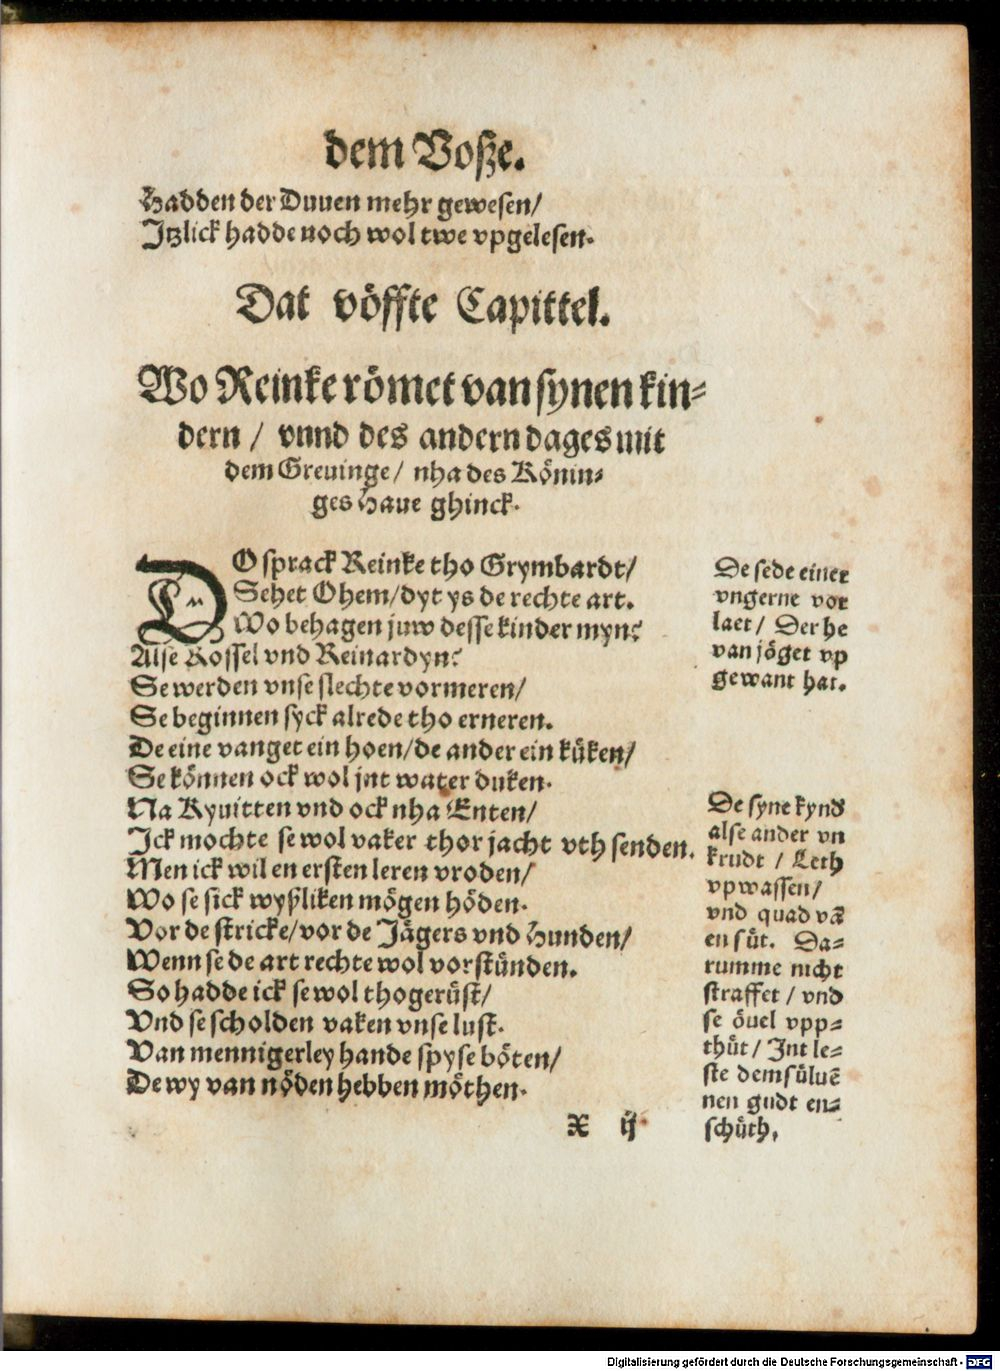 dem Voße.
Hadden der Duuen mehr gewesen/
Jtzlick hadde noch wol twe vpgelesen.
Dat vöffte Capittel.
Wo Reinke römet van synen kin-
dern / vnnd des andern dages mit
dem Greuinge / nha des Könin-
ges Haue ghinck.
DO sprack Reinke tho Grymbardt/
Sehet Ohem/dyt ys de rechte art.
Wo behagen juw desse kinder myn?
Alse Rossel vnd Reinardyn?
Se werden vnse slechte vormeren/
Se beginnen syck alrede tho erneren.
De eine vanget ein hoen/de ander ein küken/
Se können ock wol jnt water duken.
Na Kyuitten vnd ock nha Enten/
Jck mochte se wol vaker thor jacht vth senden.
Men ick wil en ersten leren vroden/
Wo se sick wyßliken mögen höden.
Vor de stricke/vor de Jägers vnd Hunden/
Wenn se de art rechte wol vorstünden.
So hadde ick se wol thogerüst/
Vnd se scholden vaken vnse lust.
Van mennigerley hande spyse böten/
De wy van nöden hebben möthen.
X ij
De sede einer
vngerne vor
laet / Der he
van jöget vp
gewant hat.
De syne kynd
alse ander vn
krudt / Leth
vpwassen/
vnd quad vā
en süt. Da-
rumme nicht
straffet / vnd
se övel vpp-
thüt / Jnt le-
ste demsüluē
nen gudt en-
schüth.
Digitalisierung gefördert durch die Deutsche Forschungsgemeinschaft - DFG